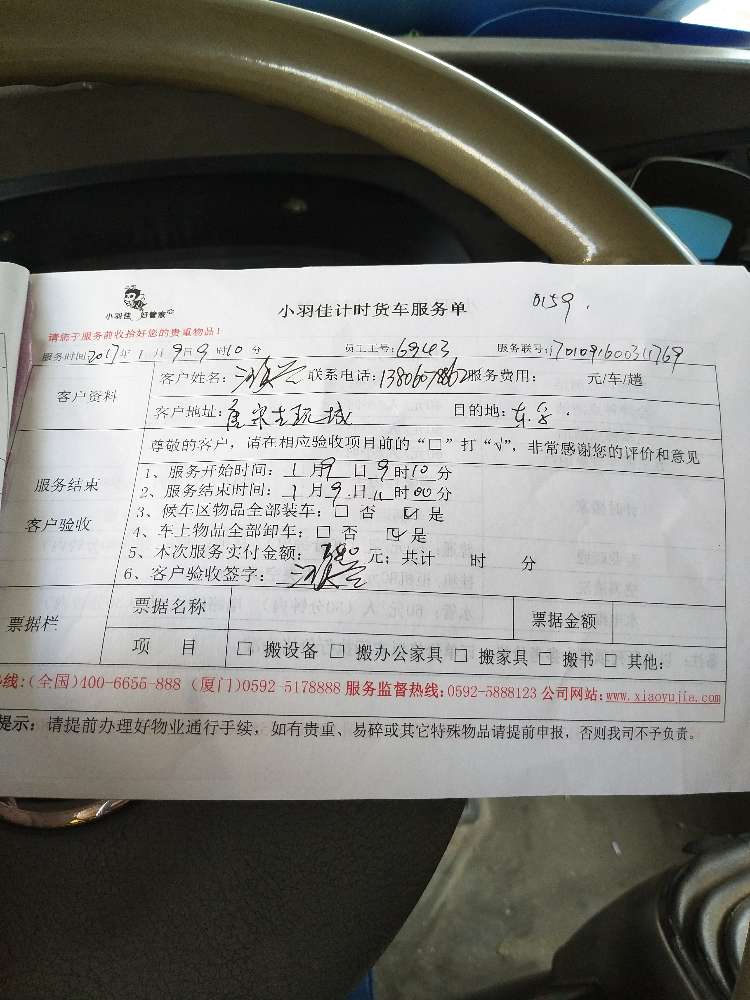 小羽佳 好管家
小羽佳计时货车服务单 0159.
请您于服务前收拾好您的贵重物品！
服务时间2017年1月9日9时10分 员工工号:6943 服务联号:
客户资料
客户姓名: 联系电话: 服务费用: 元/车/趟
客户地址: 目的地:
尊敬的客户，请在相应验收项目前的“□”打“√”，非常感谢您的评价和意见
服务结束
客户验收
1、服务开始时间：1月9日9时10分
2、服务结束时间：1月9日11时00分
3、候车区物品全部装车：□ 否 ☑ 是
4、车上物品全部卸车：□ 否 ☑ 是
5、本次服务实付金额： 元；共计 时 分
6、客户验收签字：
票据栏
票据名称 票据金额
项 目 □ 搬设备 □ 搬办公家具 □ 搬家具 □ 搬书 □ 其他:
线:(全国)400-6655-888 (厦门)0592-5178888 服务监督热线:0592-5888123 公司网站:www.xiaoyujia.com
提示：请提前办理好物业通行手续，如有贵重、易碎或其它特殊物品请提前申报，否则我司不予负责。